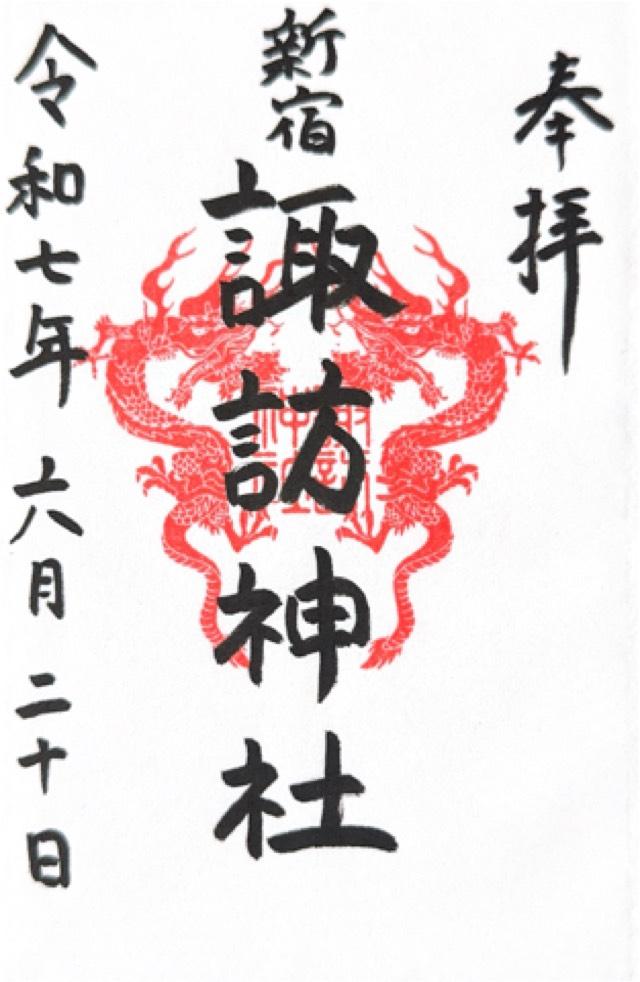 奉拝
新宿
諏訪神社
令和七年 六月 二十日